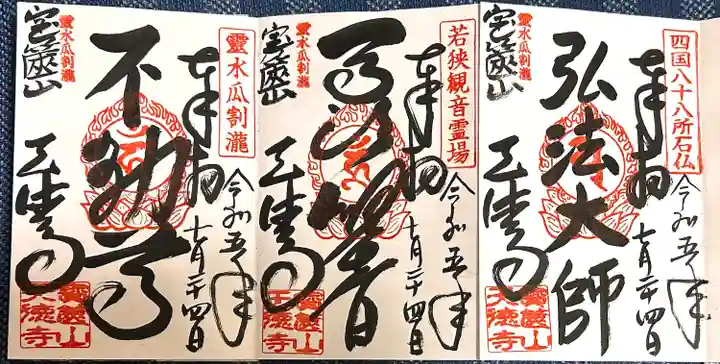 四国八十八所石仏
奉拝
令和五年
七月二十四日
弘法大師
靈水瓜割瀧
宝篋山
天徳寺
寶篋山
天徳寺
若狭観音霊場
奉拝
令和五年
七月二十四日
馬頭観音
靈水瓜割瀧
宝篋山
天徳寺
寶篋山
天徳寺
靈水瓜割瀧
奉拝
令和五年
七月二十四日
不動尊
靈水瓜割瀧
宝篋山
天徳寺
寶篋山
天徳寺